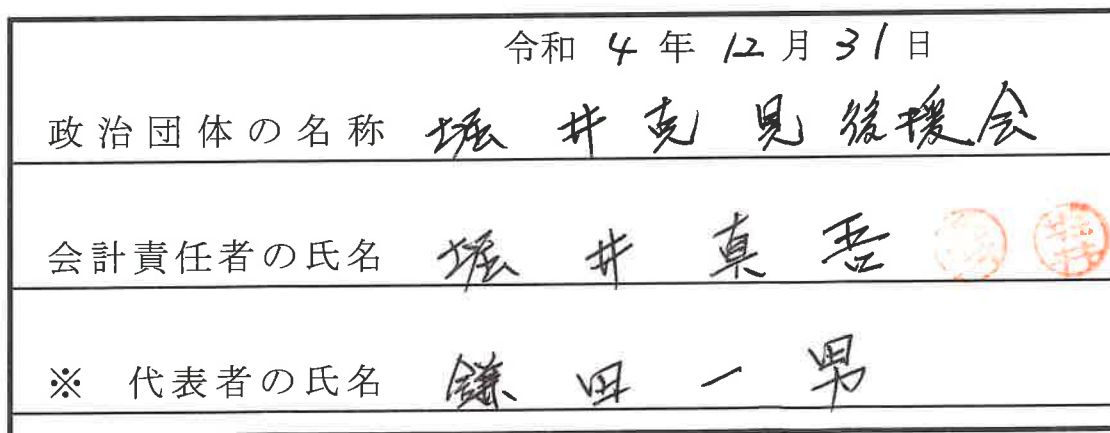 令和 4 年 12 月 31 日
政治団体の名称 堀井克見後援会
会計責任者の氏名 堀井真吾
※ 代表者の氏名 鎌田一男